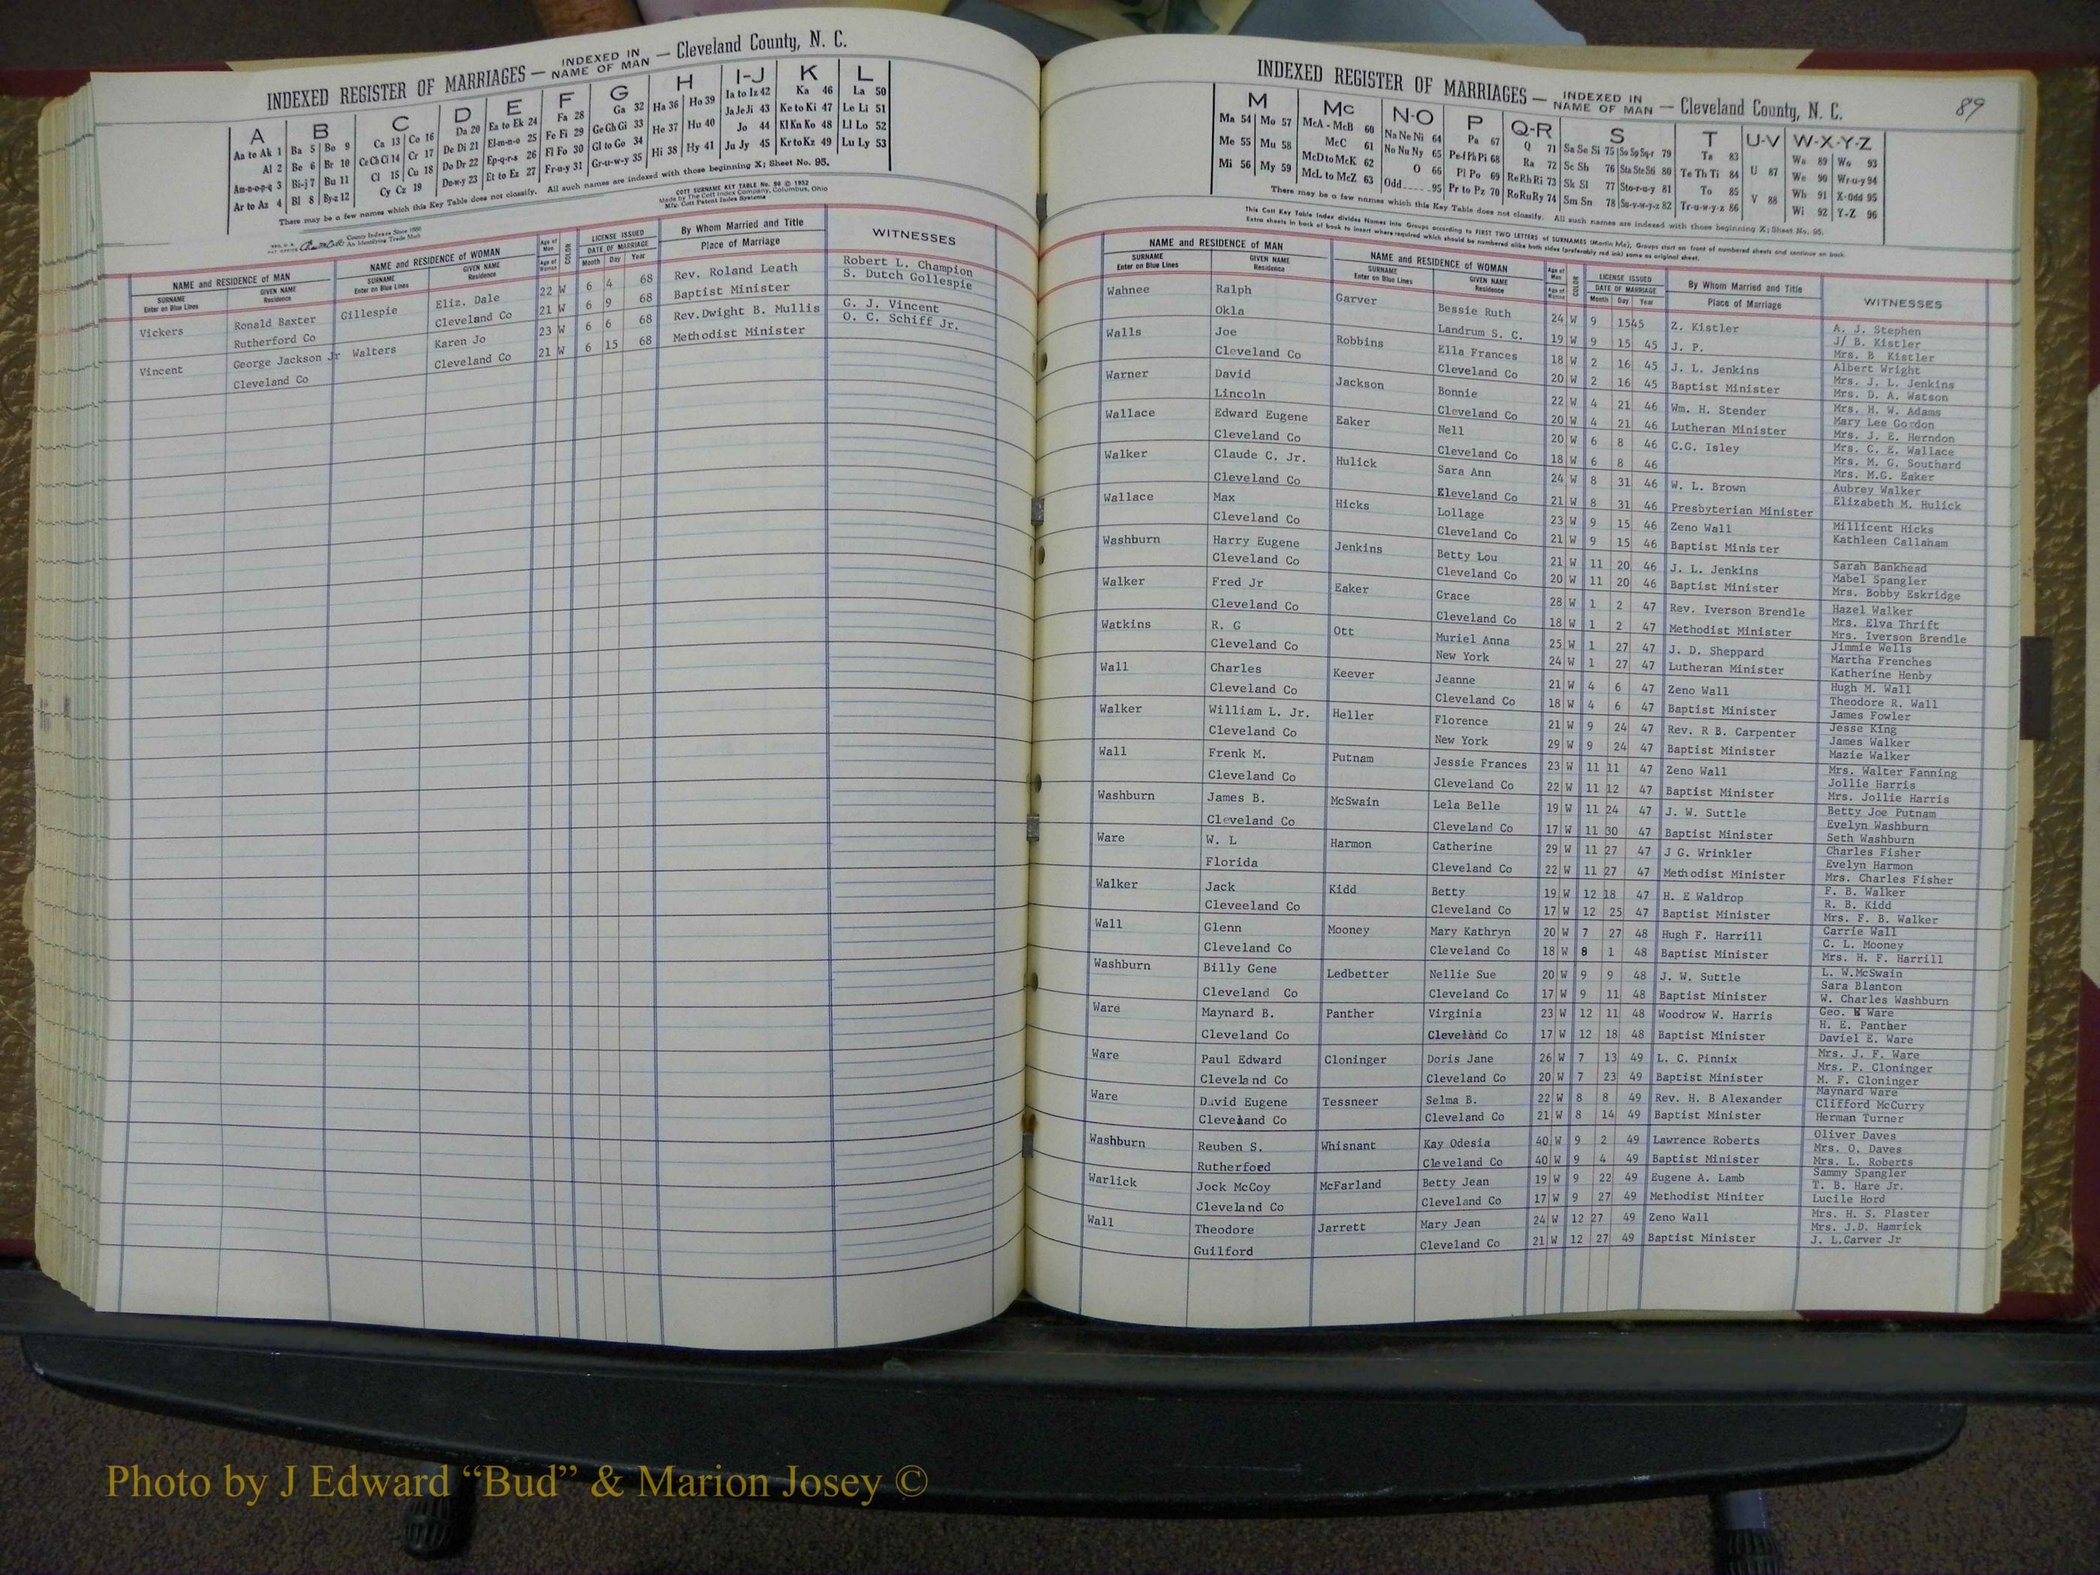 INDEXED REGISTER OF MARRIAGES — INDEXED IN NAME OF MAN — Cleveland County, N. C.
A B C D E F G H I-J K L
Aa to Ak 1 Ba 5 Bo 9 Ca 13 Co 16 Da 20 Ea to Ek 24 Fa 28 Ga 32 Ha 36 Ho 39 Ia to Iz 42 Ka 46 La 50
Al 2 Be 6 Br 10 Ce Ch Ci 14 Cr 17 De Di 21 El-m-n-o 25 Fe Fi 29 Ge Gh Gi 33 He 37 Hu 40 Ja Je Ji 43 Ke to Ki 47 Le Li 51
Am-n-o-p-q 3 Bi-j 7 Bu 11 Cl 15 Cu 18 Do Dr 22 Ep-q-r-s 26 Fl Fo 30 Gl to Go 34 Hi 38 Hy 41 Jo 44 Kl Kn Ko 48 Ll Lo 52
Ar to Az 4 Bl 8 By-z 12 Cy Cz 19 Du-w-y 23 Et to Ez 27 Fr-u-y 31 Gr-u-w-y 35 Ju Jy 45 Kr to Kz 49 Lu Ly 53
There may be a few names which this Key Table does not classify. All such names are indexed with those beginning X; Sheet No. 95.
COTT SURNAME KEY TABLE No. 96 © 1952
Made by The Cott Index Company, Columbus, Ohio
Mfg. Cott Patent Index Systems
County Indexes Since 1888
An Identifying Trade Mark
NAME and RESIDENCE of MAN NAME and RESIDENCE of WOMAN Age of Man Age of Woman COLOR LICENSE ISSUED DATE OF MARRIAGE By Whom Married and Title WITNESSES
SURNAME Enter on Blue Lines GIVEN NAME Residence SURNAME Enter on Blue Lines GIVEN NAME Residence Month Day Year Place of Marriage
Vickers Ronald Baxter Gillespie Eliz. Dale 22 W 6 4 68 Rev. Roland Leath Robert L. Champion
Rutherford Co Cleveland Co 21 W 6 9 68 Baptist Minister S. Dutch Gollespie
Vincent George Jackson Jr Walters Karen Jo 23 W 6 6 68 Rev.Dwight B. Mullis G. J. Vincent
Cleveland Co Cleveland Co 21 W 6 15 68 Methodist Minister O. C. Schiff Jr.
89
INDEXED REGISTER OF MARRIAGES — INDEXED IN NAME OF MAN — Cleveland County, N. C.
M Mc N-O P Q-R S T U-V W-X-Y-Z
Ma 54 Mo 57 McA - McB 60 Na Ne Ni 64 Pa 67 Q 71 Sa Se Si 75 So Sp Sq-r 79 Ta 83 U 87 Wa 89 Wo 93
Me 55 Mu 58 McC 61 No Nu Ny 65 Pe-f Ph Pi 68 Ra 72 Sc Sh 76 Sta Ste Sti 80 Te Th Ti 84 V 88 We 90 Wr-u-y 94
Mi 56 My 59 McD to McK 62 O 66 Pl Po 69 Re Rh Ri 73 Sk Sl 77 Sto-r-u-y 81 To 85 Wh 91 X-Odd 95
McL to McZ 63 Odd 95 Pr to Pz 70 Ro Ru Ry 74 Sm Sn 78 Su-v-w-y-z 82 Tr-u-w-y-z 86 Wi 92 Y-Z 96
There may be a few names which this Key Table does not classify. All such names are indexed with those beginning X; Sheet No. 95.
This Cott Key Table Index divides Names into Groups according to FIRST TWO LETTERS of SURNAMES (Martin Ma), Groups start on front of numbered sheets and continue on back.
Extra sheets in back of book to insert where required which should be numbered alike both sides (preferably red ink) same as original sheet.
NAME and RESIDENCE of MAN NAME and RESIDENCE of WOMAN Age of Man Age of Woman COLOR LICENSE ISSUED DATE OF MARRIAGE By Whom Married and Title WITNESSES
SURNAME Enter on Blue Lines GIVEN NAME Residence SURNAME Enter on Blue Lines GIVEN NAME Residence Month Day Year Place of Marriage
Wahnee Ralph Garver Bessie Ruth 24 W 9 1545 Z. Kistler A. J. Stephen
Okla Landrum S. C. 19 W 9 15 45 J. P. J/ B. Kistler
Mrs. B Kistler
Walls Joe Robbins Ella Frances 18 W 2 16 45 J. L. Jenkins Albert Wright
Cleveland Co Cleveland Co 20 W 2 16 45 Baptist Minister Mrs. J. L. Jenkins
Mrs. D. A. Watson
Warner David Jackson Bonnie 22 W 4 21 46 Wm. H. Stender Mrs. H. W. Adams
Lincoln Cleveland Co 20 W 4 21 46 Lutheran Minister Mary Lee Gordon
Mrs. J. E. Herndon
Wallace Edward Eugene Eaker Nell 20 W 6 8 46 C.G. Isley Mrs. C. E. Wallace
Cleveland Co Cleveland Co 18 W 6 8 46 Mrs. M. G. Southard
Mrs. M.G. Eaker
Walker Claude C. Jr. Hulick Sara Ann 24 W 8 31 46 W. L. Brown Aubrey Walker
Cleveland Co Eleveland Co 21 W 8 31 46 Presbyterian Minister Elizabeth M. Hulick
Wallace Max Hicks Lollage 23 W 9 15 46 Zeno Wall Millicent Hicks
Cleveland Co Cleveland Co 21 W 9 15 46 Baptist Minister Kathleen Callaham
Washburn Harry Eugene Jenkins Betty Lou 21 W 11 20 46 J. L. Jenkins Sarah Bankhead
Cleveland Co Cleveland Co 20 W 11 20 46 Baptist Minister Mabel Spangler
Mrs. Bobby Eskridge
Walker Fred Jr Eaker Grace 28 W 1 2 47 Rev. Iverson Brendle Hazel Walker
Cleveland Co Cleveland Co 18 W 1 2 47 Methodist Minister Mrs. Elva Thrift
Mrs. Iverson Brendle
Watkins R. G Ott Muriel Anna 25 W 1 27 47 J. D. Sheppard Jimmie Wells
Cleveland Co New York 24 W 1 27 47 Lutheran Minister Martha Frenches
Katherine Henby
Wall Charles Keever Jeanne 21 W 4 6 47 Zeno Wall Hugh M. Wall
Cleveland Co Cleveland Co 18 W 4 6 47 Baptist Minister Theodore R. Wall
James Fowler
Walker William L. Jr. Heller Florence 21 W 9 24 47 Rev. R B. Carpenter Jesse King
Cleveland Co New York 29 W 9 24 47 Baptist Minister James Walker
Mazie Walker
Wall Frenk M. Putnam Jessie Frances 23 W 11 11 47 Zeno Wall Mrs. Walter Fanning
Cleveland Co Cleveland Co 22 W 11 12 47 Baptist Minister Jollie Harris
Mrs. Jollie Harris
Washburn James B. McSwain Lela Belle 19 W 11 24 47 J. W. Suttle Betty Joe Putnam
Cleveland Co Cleveland Co 17 W 11 30 47 Baptist Minister Evelyn Washburn
Seth Washburn
Ware W. L Harmon Catherine 29 W 11 27 47 J G. Wrinkler Charles Fisher
Florida Cleveland Co 22 W 11 27 47 Methodist Minister Evelyn Harmon
Mrs. Charles Fisher
Walker Jack Kidd Betty 19 W 12 18 47 H. E Waldrop F. B. Walker
Cleveeland Co Cleveland Co 17 W 12 25 47 Baptist Minister R. B. Kidd
Mrs. F. B. Walker
Wall Glenn Mooney Mary Kathryn 20 W 7 27 48 Hugh F. Harrill Carrie Wall
Cleveland Co Cleveland Co 18 W 8 1 48 Baptist Minister C. L. Mooney
Mrs. H. F. Harrill
Washburn Billy Gene Ledbetter Nellie Sue 20 W 9 9 48 J. W. Suttle L. W.McSwain
Cleveland Co Cleveland Co 17 W 9 11 48 Baptist Minister Sara Blanton
W. Charles Washburn
Ware Maynard B. Panther Virginia 23 W 12 11 48 Woodrow W. Harris Geo. Ware
Cleveland Co Cleveland Co 17 W 12 18 48 Baptist Minister H. E. Panther
Daviel E. Ware
Ware Paul Edward Cloninger Doris Jane 26 W 7 13 49 L. C. Pinnix Mrs. J. F. Ware
Cleveland Co Cleveland Co 20 W 7 23 49 Baptist Minister Mrs. P. Cloninger
M. F. Cloninger
Ware David Eugene Tessneer Selma B. 22 W 8 8 49 Rev. H. B Alexander Maynard Ware
Cleveland Co Cleveland Co 21 W 8 14 49 Baptist Minister Clifford McCurry
Herman Turner
Washburn Reuben S. Whisnant Kay Odesia 40 W 9 2 49 Lawrence Roberts Oliver Daves
Rutherford Cleveland Co 40 W 9 4 49 Baptist Minister Mrs. O. Daves
Mrs. L. Roberts
Warlick Jock McCoy McFarland Betty Jean 19 W 9 22 49 Eugene A. Lamb Sammy Spangler
Cleveland Co Cleveland Co 17 W 9 27 49 Methodist Miniter T. B. Hare Jr.
Lucile Hord
Wall Theodore Jarrett Mary Jean 24 W 12 27 49 Zeno Wall Mrs. H. S. Plaster
Guilford Cleveland Co 21 W 12 27 49 Baptist Minister Mrs. J.D. Hamrick
J. L.Carver Jr
Photo by J Edward “Bud” & Marion Josey ©